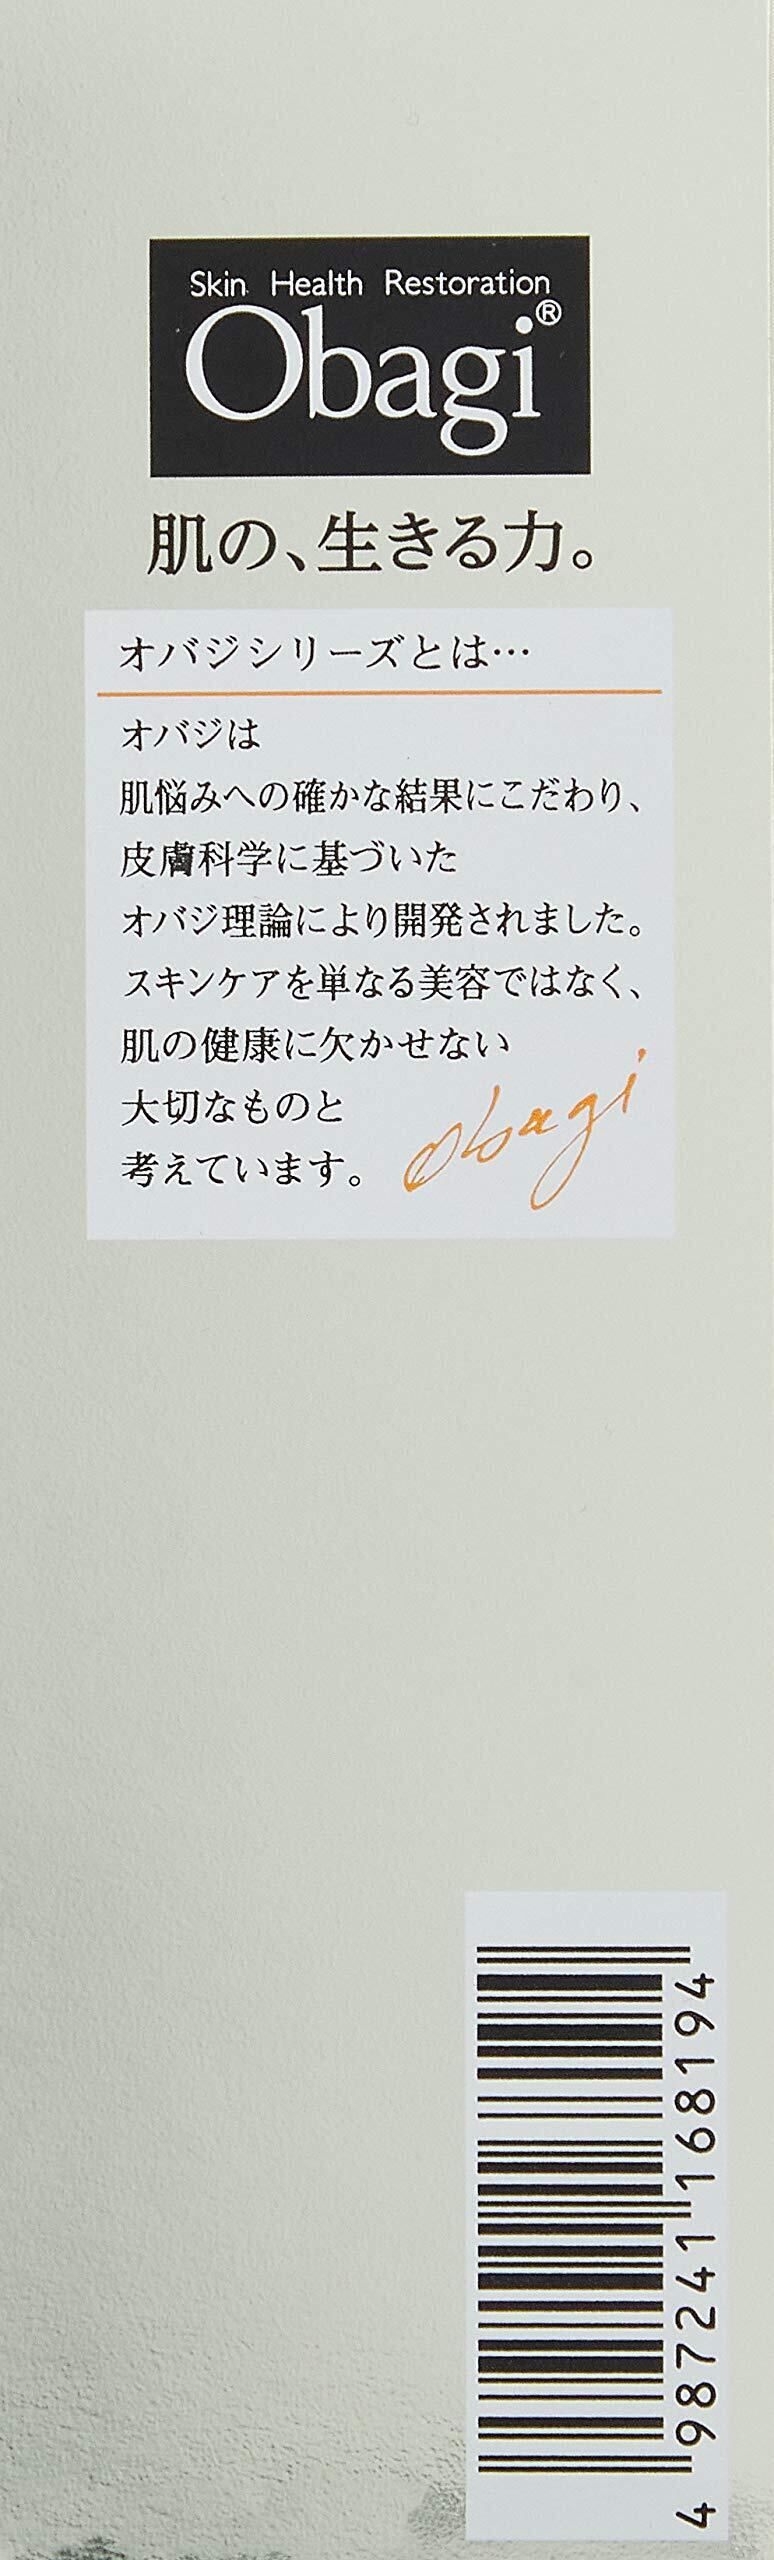 Skin Health Restoration
Obagi®
肌の、生きる力。
オバジシリーズとは…
オバジは
肌悩みへの確かな結果にこだわり、
皮膚科学に基づいた
オバジ理論により開発されました。
スキンケアを単なる美容ではなく、
肌の健康に欠かせない
大切なものと
考えています。
Obagi
4 987241 168194